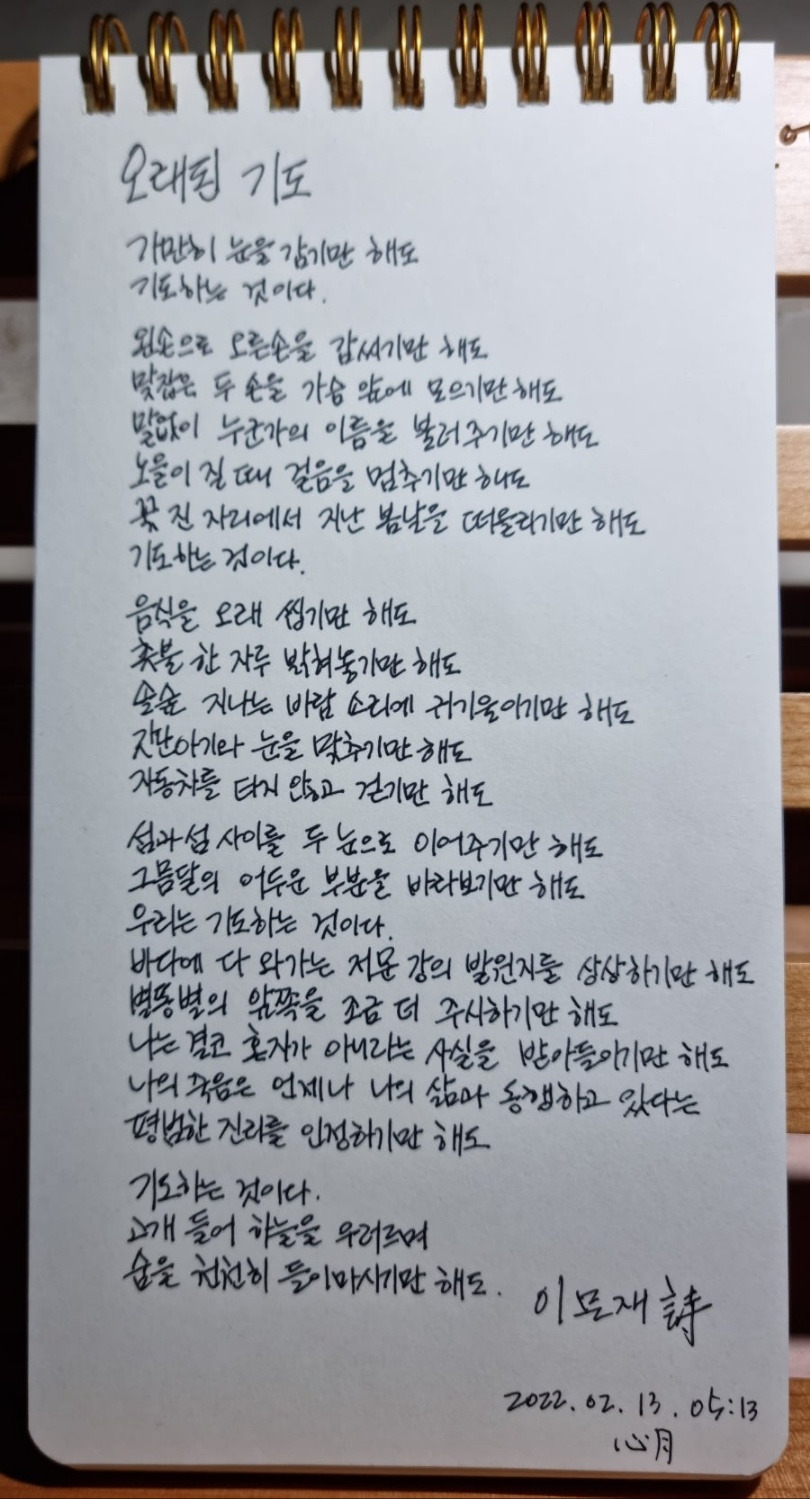 오래된 기도
가만히 눈을 감기만 해도
기도하는 것이다.
왼손으로 오른손을 감싸기만 해도
맞잡은 두 손을 가슴 앞에 모으기만 해도
말없이 누군가의 이름을 불러주기만 해도
노을이 질 때 걸음을 멈추기만 해도
꽃 진 자리에서 지난 봄날을 떠올리기만 해도
기도하는 것이다.
음식을 오래 씹기만 해도
촛불 한 자루 밝혀놓기만 해도
솔숲 지나는 바람 소리에 귀기울이기만 해도
갓난아기와 눈을 맞추기만 해도
자동차를 타지 않고 걷기만 해도
섬과 섬 사이를 두 눈으로 이어주기만 해도
그믐달의 어두운 부분을 바라보기만 해도
우리는 기도하는 것이다.
바다에 다 와가는 저문 강의 발원지를 상상하기만 해도
별똥별의 앞쪽을 조금 더 주시하기만 해도
나는 결코 혼자가 아니라는 사실을 받아들이기만 해도
나의 죽음은 언제나 나의 삶과 동행하고 있다는
평범한 진리를 인정하기만 해도
기도하는 것이다.
고개 들어 하늘을 우러르며
숨을 천천히 들이마시기만 해도.
이문재 詩
2022.02.13.05:13
心月